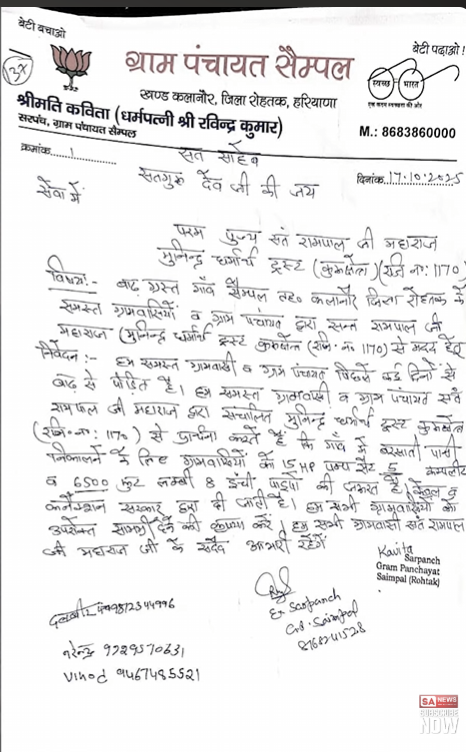 बेटी बचाओ
बेटी पढ़ाओ !
38
ग्राम पंचायत सैम्पल
स्वच्छ भारत
एक कदम स्वच्छता की ओर
खण्ड कलानौर, जिला रोहतक, हरियाणा
श्रीमति कविता (धर्मपत्नी श्री रविन्द्र कुमार)
सरपंच, ग्राम पंचायत सैम्पल
M.: 8683860000
क्रमांक 1
सत साहेब
दिनांक 17.10.2025
सतगुरु देव जी की जय
सेवा में
परम पुज्य संत रामपाल जी महाराज
मुनिन्द्र धर्मार्थ ट्रस्ट (कुरूक्षेत्र) (रजि नः 1170)
विषय:- बाढ़ ग्रस्त गाँव सैम्पल तह० कलानौर जिला रोहतक के
समस्त ग्रामवासियों व ग्राम पंचायत द्वारा सन्त रामपाल जी
महाराज (मुनिन्द्र धर्मार्थ ट्रस्ट कुरूक्षेत्र (रजि. नः 1170) से मदद हेतु
निवेदन :- हम समस्त ग्रामवासी व ग्राम पंचायत पिछले कई दिनों से
बाढ़ से पीड़ित है। हम समस्त ग्रामवासी व ग्राम पंचायत संत
रामपाल जी महाराज द्वारा संचालित मुनिन्द्र धर्मार्थ ट्रस्ट कुरूक्षेत्र
(रजि. नः 1170) से प्रार्थना करते है कि गाँव में बरसाती पानी
निकालने के लिए ग्रामवासियों को 15 HP पम्प सैट 5 कम्पलीट
व 6500 फुट लम्बी 8 इंची पाइप की जरूरत है। केबल व
कनैक्शन सरकार द्वारा दी जानी है। हम सभी ग्रामवासियों को
उपरोक्त सामग्री देने की कृपया करें। हम सभी ग्रामवासी संत रामपाल
जी महाराज जी के सदैव आभारी रहेंगें
Kavita
Sarpanch
Gram Panchayat
Saimpal (Rohtak)
Ex Sarpanch
Saimpal
नरेन्द्र 9729570631
Vinod 9467485521
SA NEWS
SUBSCRIBE
NOW